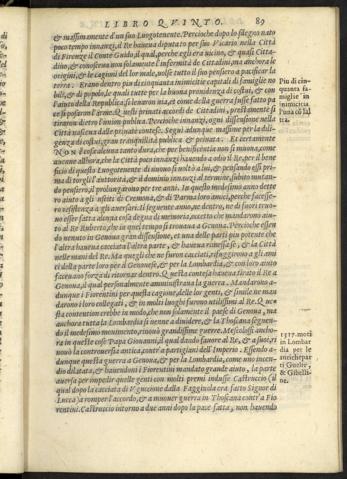 LIBRO QVINTO. 89
& massimamente d'un suo Luogotenente. Percioche dopo lo sdegno nato
poco tempo innanzi, il Re haueua diputato per suo Vicario nella Città
di Firenze il Conte Guido, il qual, perche egli era uicino, & quasi Citta-
dino, & conosceua non solamente l'infermità de Cittadini, ma anchora le
origini, & le cagioni del lor male, uolse tutto il suo pensiero a pacificar la
terra. Erano dentro piu di cinquanta inimicitie capitali di famiglie no
bili, & di popolo, le quali tutte per la buona prouidenza di costui, & con
l'aiuto della Republica, si leuaron uia, et come da la guerra fusse fatto pa
ce si posarono l'armi, & questi priuati accordi de Cittadini, prestamente si
tirarono dietro l'union publica. Percioche innanzi, ogni dissensione nella
Città nasceua dalle priuate contese. Seguì adunque massime per la dili-
genza di costui, gran tranquillità publica & priuata. Et certamente
Non è cosa alcuna tanto dura, che per beniuolentia non si muoua, come
auenne allhora, che la Città poco innanzi hauendo a odio il Re, per il bene
ficio di questo Luogotenente di nuouo si uoltò a lui, & pensando essi pri-
ma di torgli l'autorità, & il dominio innanzi al termine, subito mutan-
do pensiero, il prolungarono per tre anni. In questo medesimo anno dette
ro aiuto a gli usciti di Cremona, & di Parma loro amici, perche facesse-
ro resistenza a gli auersari. Il seguente anno, ne dentro, ne di fuori troua-
no esser fatta alcuna cosa degna di memoria, eccetto che mandarono aiu-
to al Re Ruberto, che in quel tempo si trouaua a Genoua. Percioche essen-
do uenuto in Genoua gran dissensione, et una delle parti piu potente che
l'altra haueua cacciata l'altra parte, & haueua rimessa se, & la Città
nelle mani del Re. Ma quegli che ne furon cacciati, rifuggirono a gli ami
ci della parte loro per il Genouese, & per la Lombardia, & con loro aiuto
faceano forza di ritornar dentro. Questa contesa haueua tirato il Re a
Genoua, il qual personalmente amministraua la guerra. Mandarono a-
dunque i Fiorentini per questa cagione, delle lor genti, & simile ne man
darono i loro collegati, & in molti luoghi furono utilissimi al Re. Que-
sta contention crebbe in modo, che non solamente il paese di Genoua, ma
anchora tutta la Lombardia si uenne a diuidere, & la Thoscana seguen-
do il medesimo mouimento, rinouò grandissime guerre. Mescolossi ancho-
ra in queste cose Papa Giouanni, il qual dando fauore al Re, & a suoi, ri
nouò la controuersia antica contr'a partigiani dell'Imperio. Essendo a-
dunque questa guerra a Genoua, & per la Lombardia, come uno incen-
dio dilatata, & hauendoui i Fiorentini mandato grande aiuto, la parte
auuersa per impedir quelle genti con molti premi indusse Castruccio (il
qual dopo la cacciata di Vguccione dalla Faggiuola era fatto Signor di
Lucca) a romper l'accordo, & a muouer guerra in Thoscana contr'a Fio
rentini. Castruccio intorno a due anni dopo la pace fatta, non hauendo
Piu di cin-
quanta fa-
miglie in
inimicitia
l'una cõ l'al
tra.
1317. motà
in Lombar
dia per le
antiche par
ti Guelfe,
& Ghibelli-
ne.